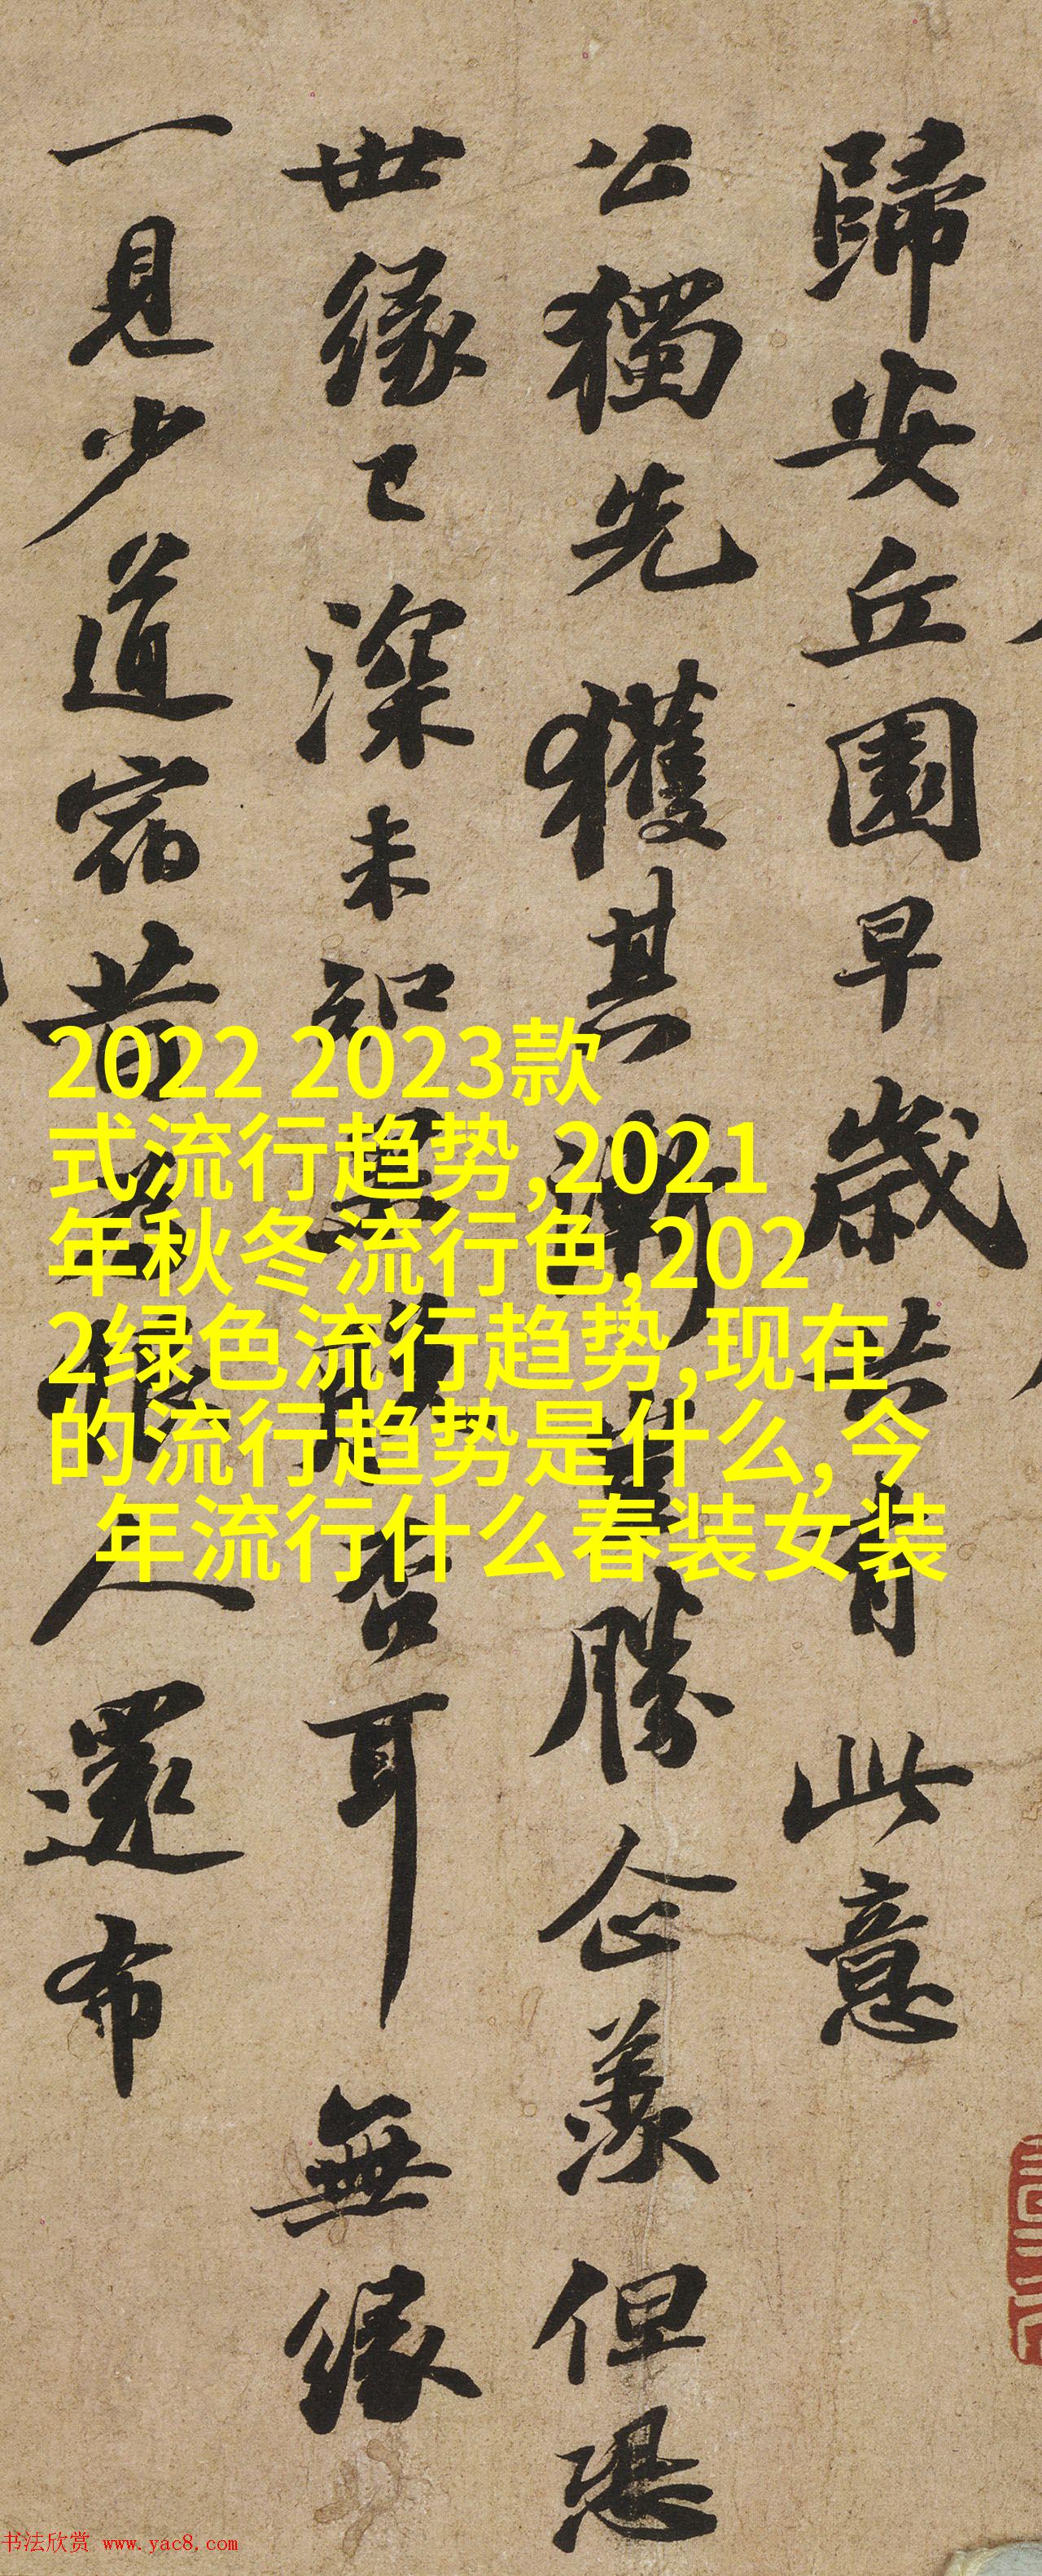 歸安丘園早歲共有此意
公獨先獲其漸豈勝企羨但恐
世緣已深未知果脫否耳無緣
一見少道宿昔為恨人還布
2022 2023款
式流行趋势,2021
年秋冬流行色,202
2绿色流行趋势,现在
的流行趋势是什么,今
年流行什么春装女装
书法欣赏 www.yac8.com